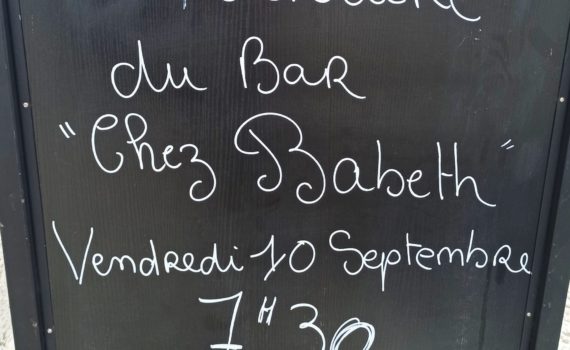 du BAR
"Chez Babeth"
Vendredi 10 Septembre
7H30